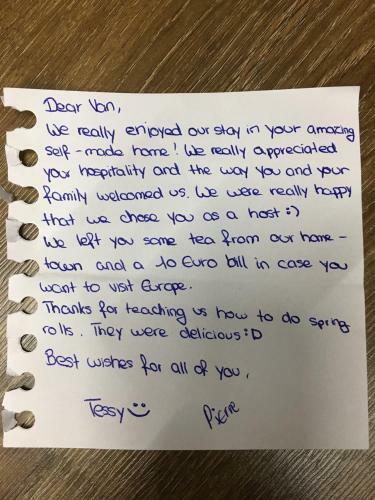 Dear Van,
We really enjoyed our stay in your amazing
self-made home! We really appreciated
your hospitality and the way you and your
family welcomed us. We were really happy
that we chose you as a host :)
We left you some tea from our home-
town and a 10 Euro bill in case you
want to visit Europe.
Thanks for teaching us how to do spring
rolls. They were delicious :D
Best wishes for all of you,
Tessy Pierre